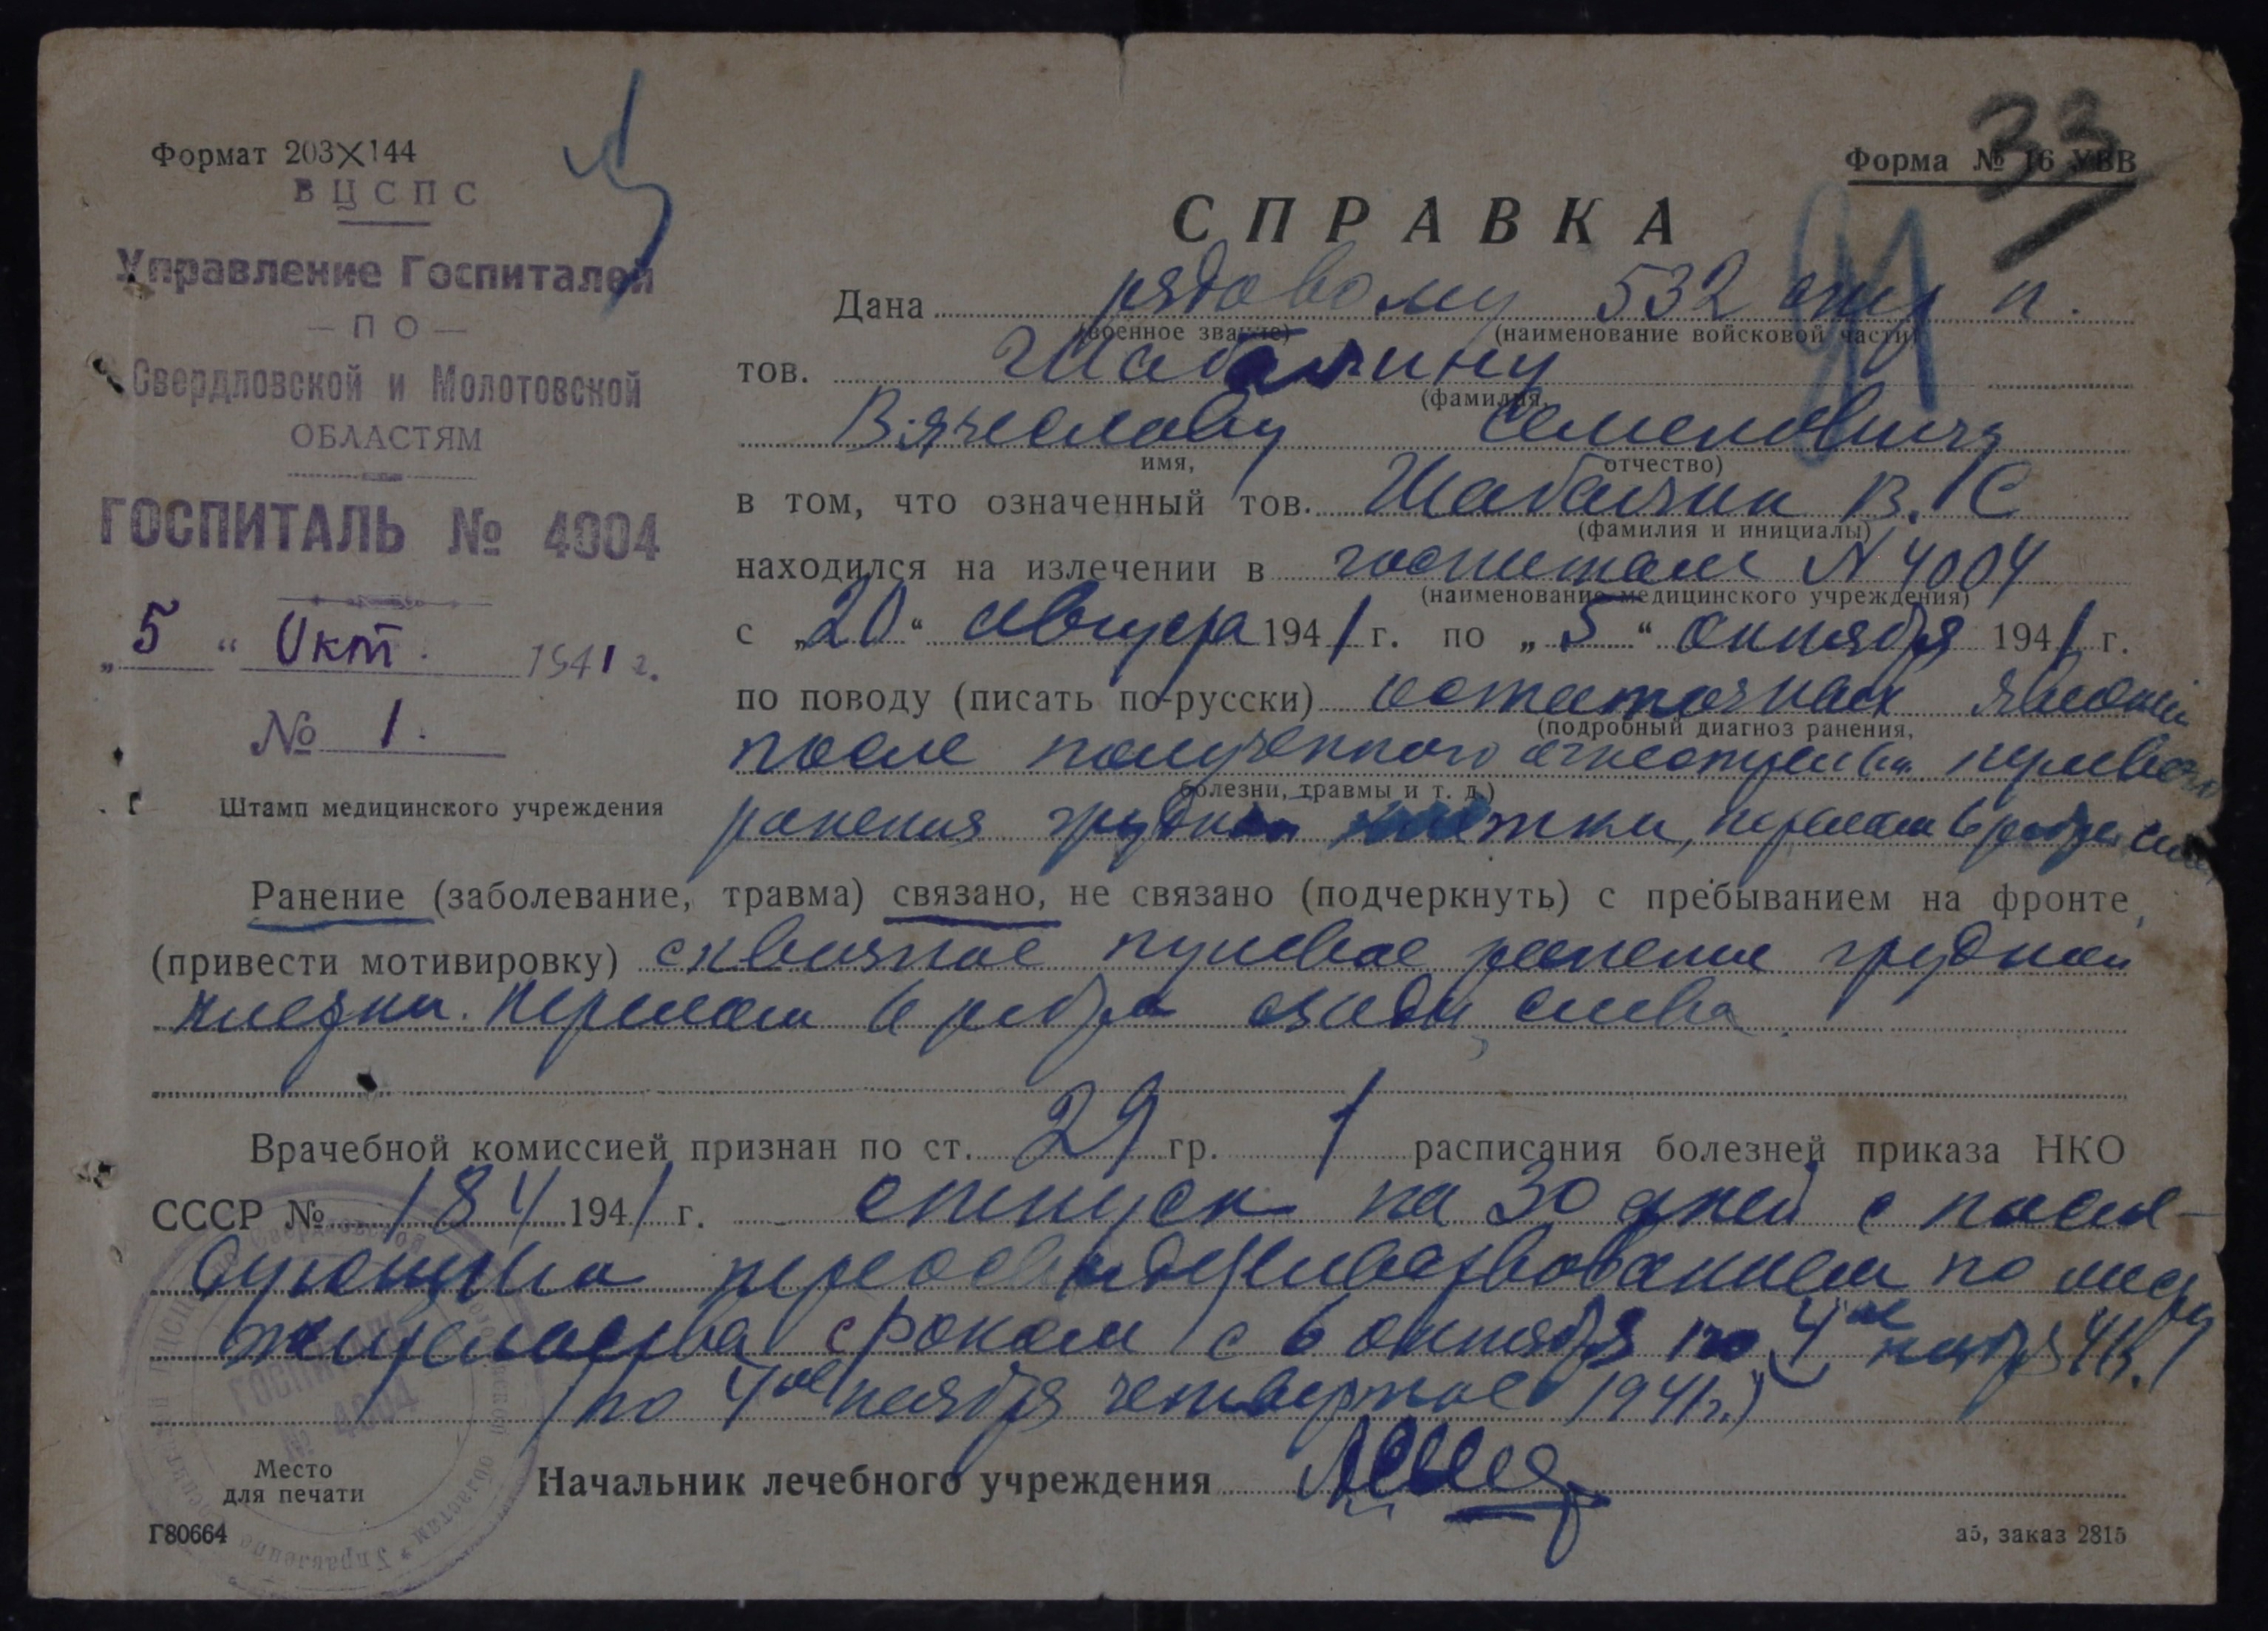 Формат 203×144
Форма № 16 УВВ
33
91
ВЦСПС
Управление Госпиталей
— ПО —
Свердловской и Молотовской
ОБЛАСТЯМ
ГОСПИТАЛЬ № 4004
„5“ Окт. 1941 г.
№ 1.
Штамп медицинского учреждения
СПРАВКА
Дана рядовому 532 стр п.
(военное звание) (наименование войсковой части)
тов. Шабалину
(фамилия,
Вячеславу Семеновичу
имя, отчество)
в том, что означенный тов. Шабалин В. С
(фамилия и инициалы)
находился на излечении в госпитале № 4004
(наименование медицинского учреждения)
с „20“ августа 1941 г. по „5“ октября 1941 г.
по поводу (писать по-русски) остаточных явлений
(подробный диагноз ранения,
после полученного огнестрельн. пулевого
болезни, травмы и т. д.)
ранения грудной клетки, перелом 6 ребра
Ранение (заболевание, травма) связано, не связано (подчеркнуть) с пребыванием на фронте,
(привести мотивировку) сквозное пулевое ранение грудной
клетки. Перелом 6 ребра сзади, слева.
Врачебной комиссией признан по ст. 29 гр. 1 расписания болезней приказа НКО
СССР № 184 1941 г. отпуск на 30 дней с после-
дующим переосвидетельствованием по месту
жительства сроком с 6 октября по 4ое ноября 41г.
(по 4ое ноября четвертое 1941г.)
Место
для печати
Начальник лечебного учреждения
Г80664
а5, заказ 2815
ГОСПИТАЛЬ
№ 4004